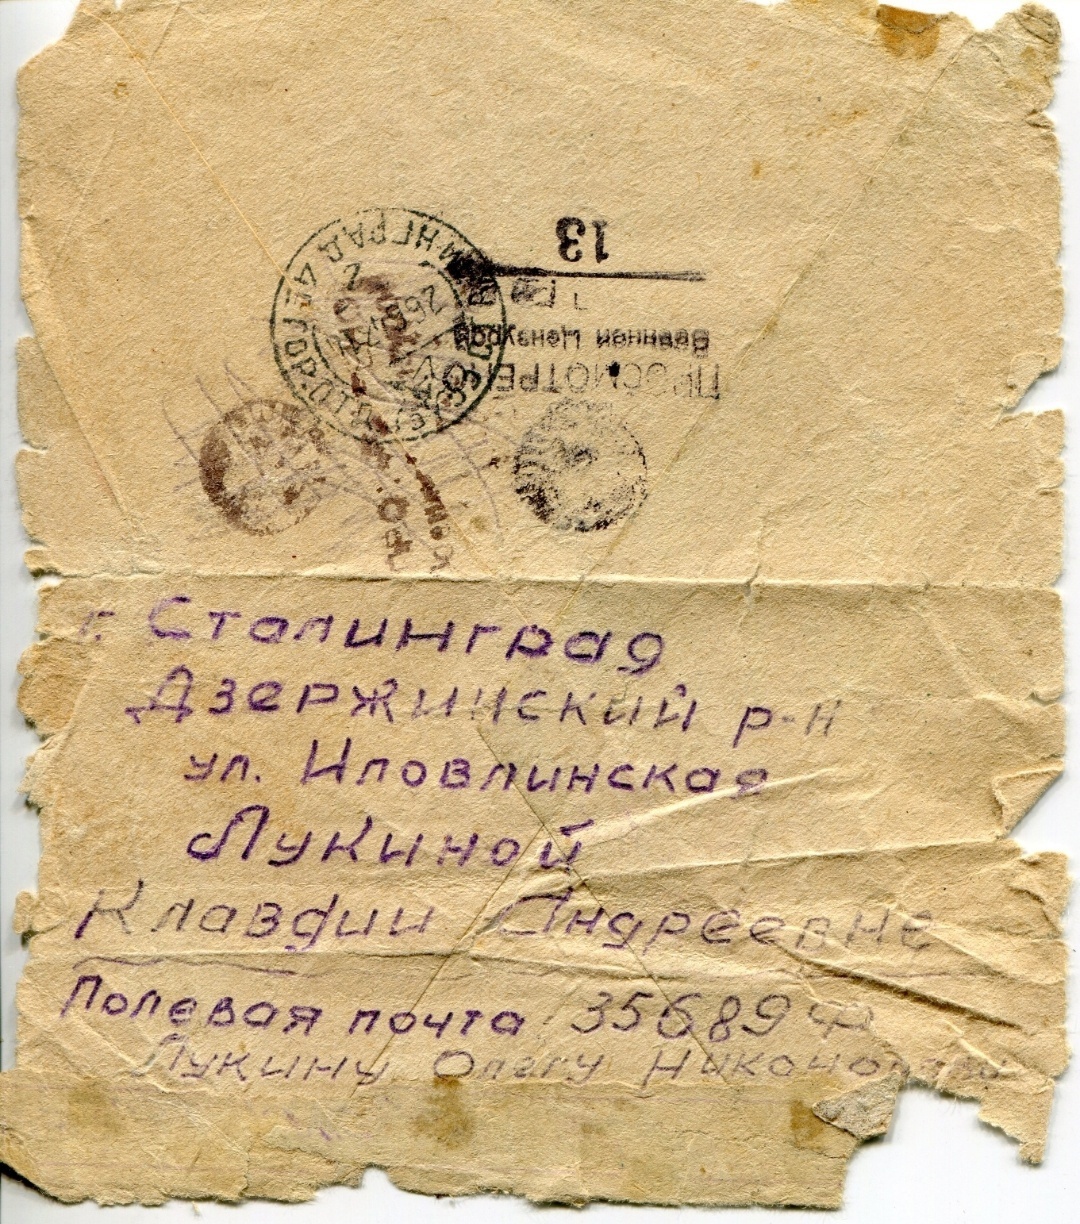 13
ПРОСМОТРЕНО
Военной Цензурой
г. Сталинград
Дзержинский р-н
ул. Иловлинская
Лукиной
Клавдии Андреевне
Полевая почта 35689 Ф
Лукину Олегу